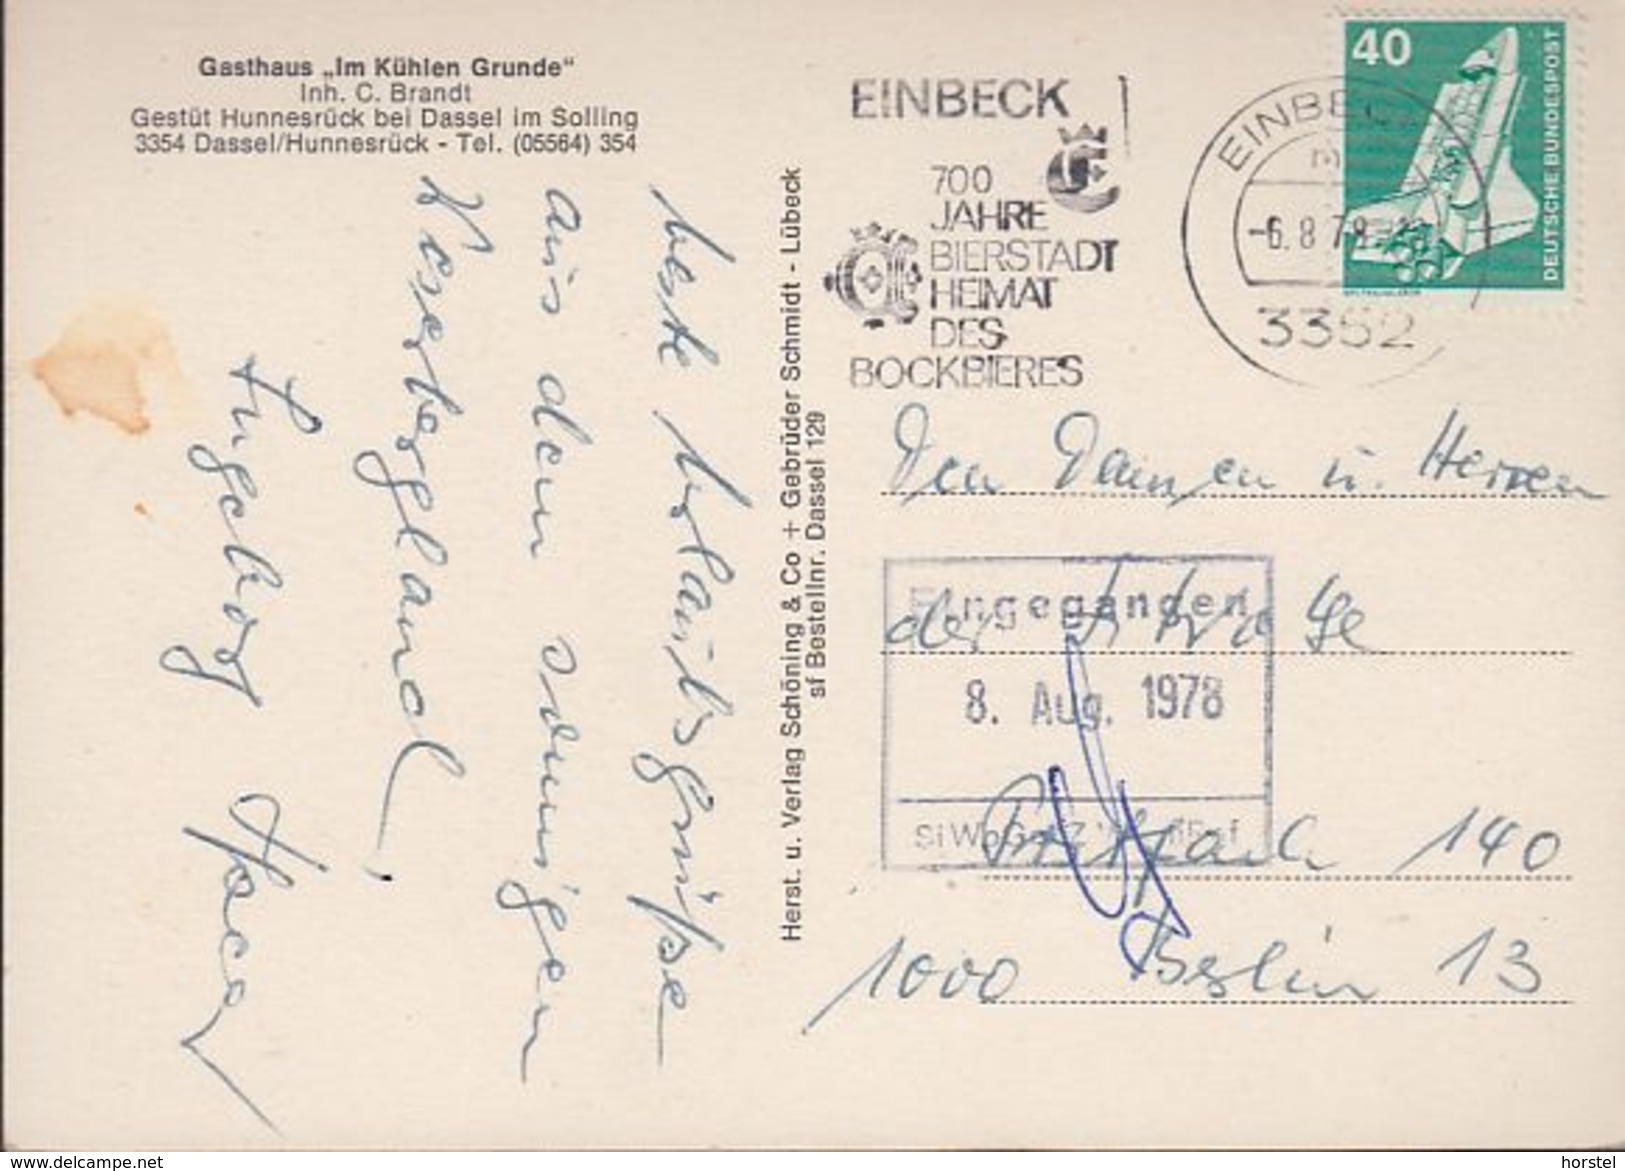 Gasthaus „Im Kühlen Grunde"
Inh. C. Brandt
Gestüt Hunnesrück bei Dassel im Solling
3354 Dassel/Hunnesrück - Tel. (05564) 354
beste Urlaubsgrüße
aus dem sonnigen
Weserbergland,
Ingeborg
Herst. u. Verlag Schöning & Co + Gebrüder Schmidt - Lübeck
sf Bestellnr. Dassel 129
EINBECK
700
JAHRE
BIERSTADT
HEIMAT
DES
BOCKBIERES
EINBECK
-6.8.78
3352
40
DEUTSCHE BUNDESPOST
Den Damen u. Herren
der
Eingegangen
8. Aug. 1978
Postfach 140
1000 Berlin 13
www.delcampe.net
horstel